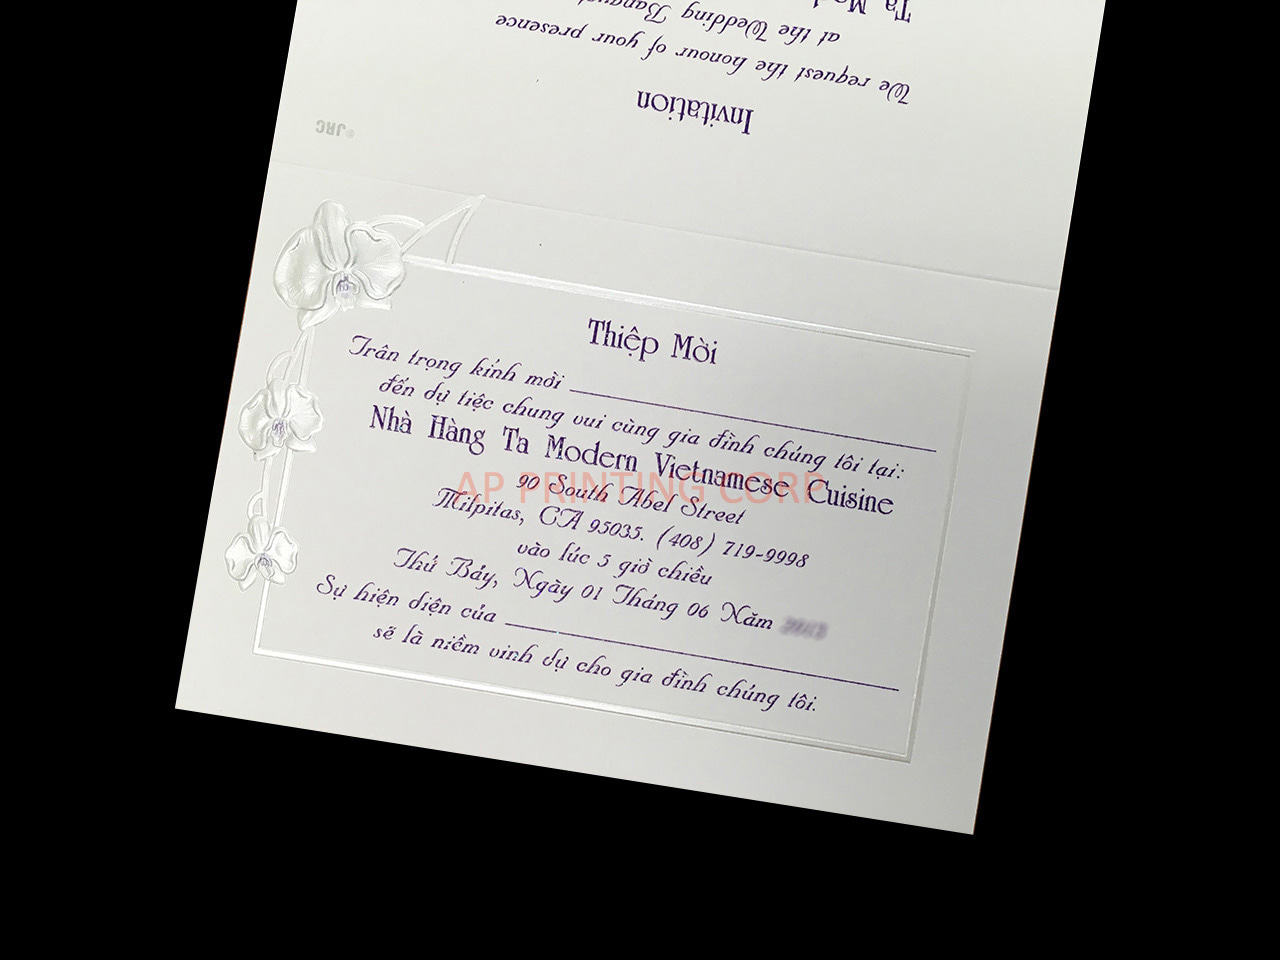 Invitation
We request the honour of your presence
at the Wedding
Ta
®JRC
Thiệp Mời
Trân trọng kính mời
đến dự tiệc chung vui cùng gia đình chúng tôi tại:
Nhà Hàng Ta Modern Vietnamese Cuisine
90 South Abel Street
Milpitas, CA 95035. (408) 719-9998
vào lúc 5 giờ chiều
Thứ Bảy, Ngày 01 Tháng 06 Năm
Sự hiện diện của
sẽ là niềm vinh dự cho gia đình chúng tôi.
AP PRINTING CORP